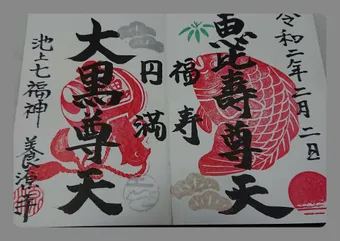 令和二年二月二日
恵比壽尊天
福寿
円満
大黒尊天
池上七福神
養源寺